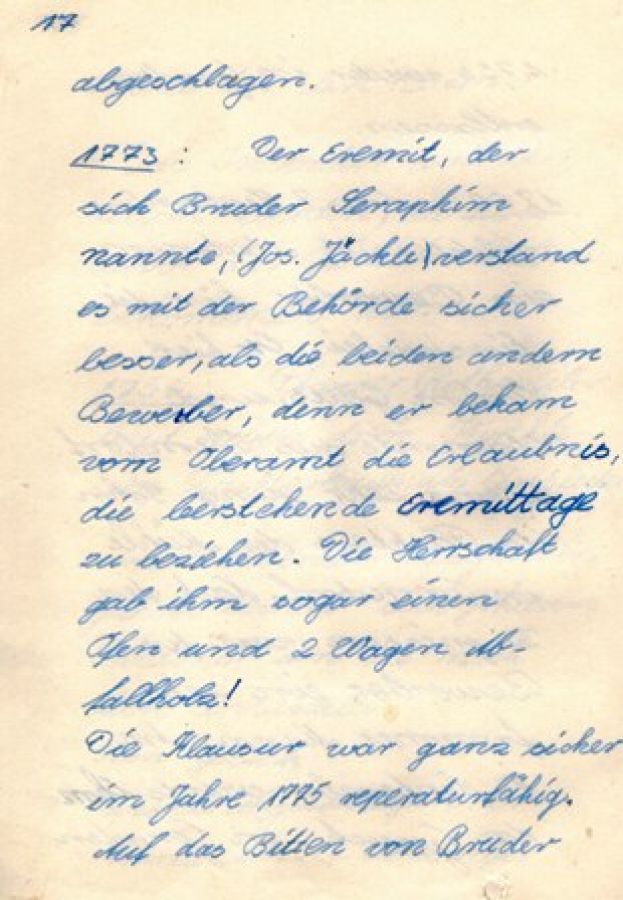 17
abgeschlagen.
1773 : Der Eremit, der
sich Bruder Seraphim
nannte, (Jos. Jächle) verstand
es mit der Behörde sicher
besser, als die beiden andern
Bewerber, denn er bekam
vom Oberamt die Erlaubnis,
die leerstehende Eremittage
zu beziehen. Die Herrschaft
gab ihm sogar einen
Ofen und 2 Wagen Ab-
fallholz!
Die Klausur war ganz sicher
im Jahre 1775 reperaturfähig.
Auf das Bitten von Bruder